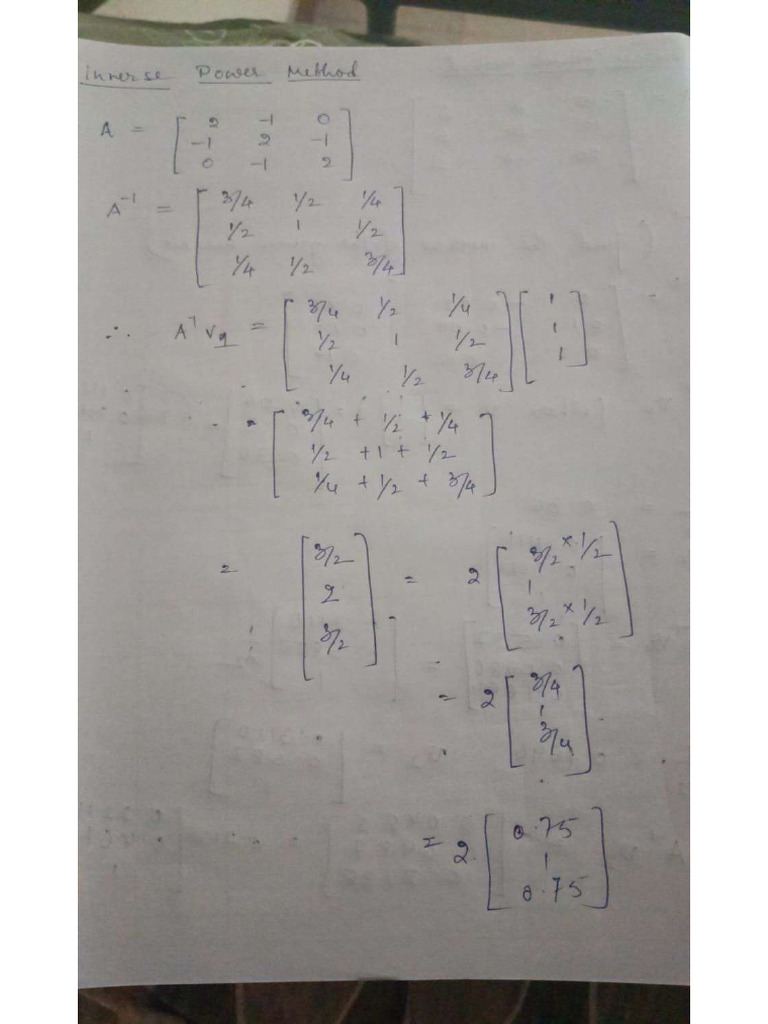 Inverse Power Method
A = [ 2 -1 0
-1 2 -1
0 -1 2 ]
A⁻¹ = [ 3/4 1/2 1/4
1/2 1 1/2
1/4 1/2 3/4 ]
∴ A⁻¹ V₀ = [ 3/4 1/2 1/4
1/2 1 1/2
1/4 1/2 3/4 ] [ 1
1
1 ]
= [ 3/4 + 1/2 + 1/4
1/2 + 1 + 1/2
1/4 + 1/2 + 3/4 ]
= [ 3/2
2
3/2 ] = 2 [ 3/2 × 1/2
1
3/2 × 1/2 ]
= 2 [ 3/4
1
3/4 ]
= 2. [ 0.75
1
0.75 ]